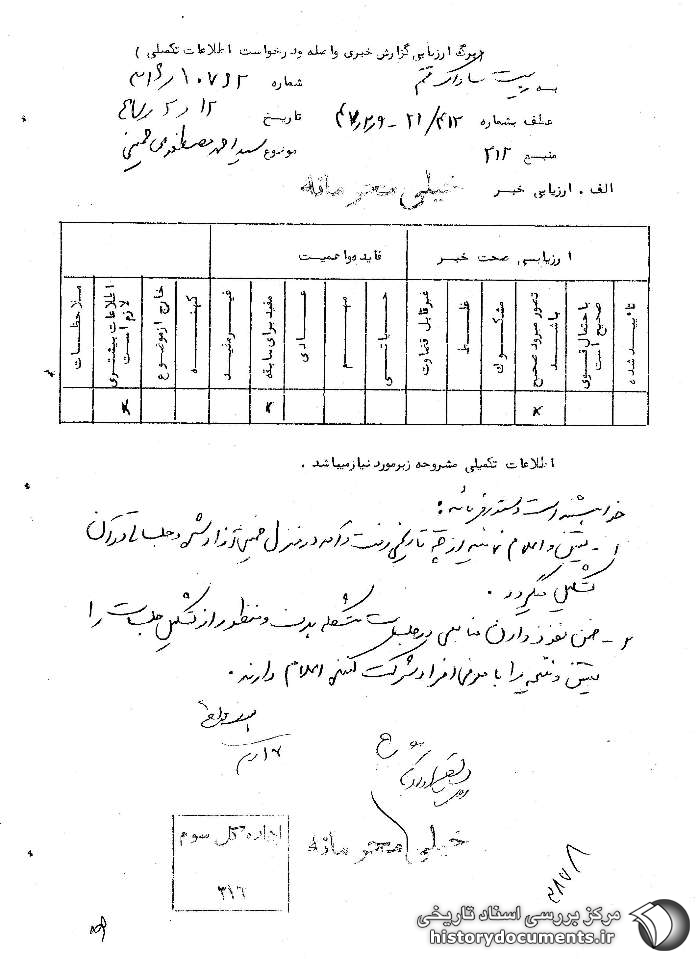 (برگ ارزیابی گزارش خبری واصله و درخواست اطلاعات تکمیلی)
به ریاست ساواک قم
شماره ۳۱۶/۱۰۷۹۲
عطف بشماره ۲۱/۴۱۲ - ۴۷/۲/۹
تاریخ ۱۲/۲/
منبع ۲۱۲
موضوع سید احمد مصطفوی خمینی
الف. ارزیابی خبر
خیلی محرمانه
ارزیابی صحت خبر
فایده و اهمیت
تأیید شده
باحتمال قوی صحیح است
تصور میرود صحیح باشد
مشکوک
غلط
غیرقابل قضاوت
حیاتی
مهم
عادی
مفید برای سابقه
غیر مفید
کهنه
خارج از موضوع
اطلاعات بیشتری لازم است
ملاحظات
× × ×
اطلاعات تکمیلی مشروحه زیر مورد نیاز میباشد.
خواهشمند است دستور فرمائید:
۱- تعیین و اعلام نمایند از چه تاریخی رفت و آمد در منزل خمینی آزاد شده و جلساتی در آن
تشکیل میگردد.
۲- ضمن نفوذ دادن منابعی در جلسات متشکله بدین و منظور از تشکیل جلسات را
تعیین و نتیجه را با معرفی افراد شرکت کننده اعلام دارند.
خیلی محرمانه
اداره کل سوم
۳۱۶
مرکز بررسی اسناد تاریخی
historydocuments.ir